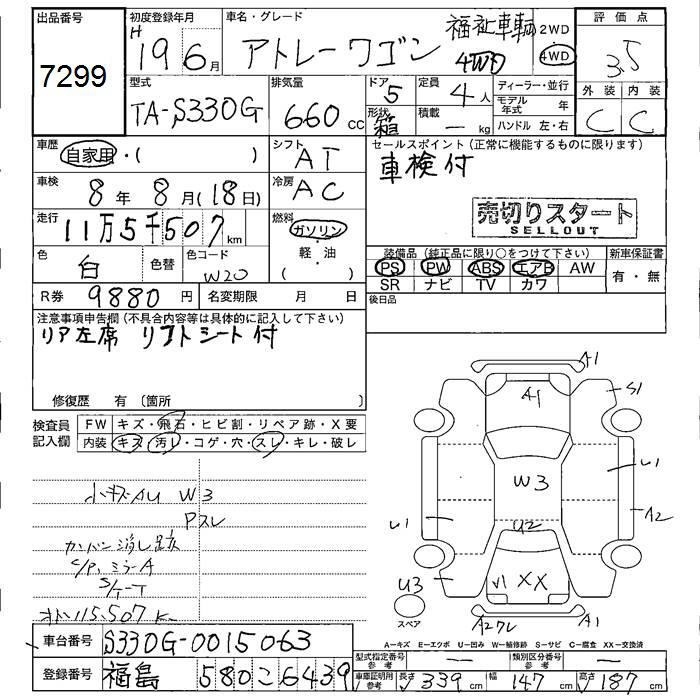 出品番号
7299
初度登録年月
H
19 6月
車名・グレード
アトレーワゴン
福祉車輌
4WD
2WD
4WD
評価点
3.5
外装 内装
C C
型式
TA-S330G
排気量
660 cc
ドア
5
定員
4人
形状
箱
積載
— kg
ディーラー・並行
モデル年式 年
ハンドル 左・右
車歴
自家用・( )
シフト
AT
セールスポイント (正常に機能するものに限ります)
車検付
売切りスタート
SELLOUT
車検
8年 8月(18日)
冷房
AC
走行
11万5千507km
燃料
ガソリン
・
軽・油
( )
色
白
色替
色コード
W20
装備品 (純正品に限り○をつけて下さい)
PS PW ABS エアB AW
SR ナビ TV カワ
新車保証書
有・無
R券 9880円
名変期限 月 日
後日品
注意事項申告欄(不具合内容等は具体的に記入して下さい)
リア左席 リフトシート付
修復歴 有(箇所 )
検査員
記入欄
FW キズ・飛石・ヒビ割・リペア跡・X要
内装 キズ・汚レ・コゲ・穴・スレ・キレ・破レ
小キズAU W3
Pスレ
カンバン消し跡
C/P, ミラーA
S/T-T
115,507 K
A1
A1
S1
U1
W3
U1
A2
U2
U3
V1
XX
スペア
A2スレ
A1
A-キズ E-エツボ U-凹み W-補修跡 S-サビ C-腐食 XX-交換済
車台番号 S330G-0015063
登録番号 福島 580 6439
型式指定番号 参考 —
類別区分番号 参考 —
車庫証明用 参考
長さ 339 cm
幅 147 cm
高さ 187 cm